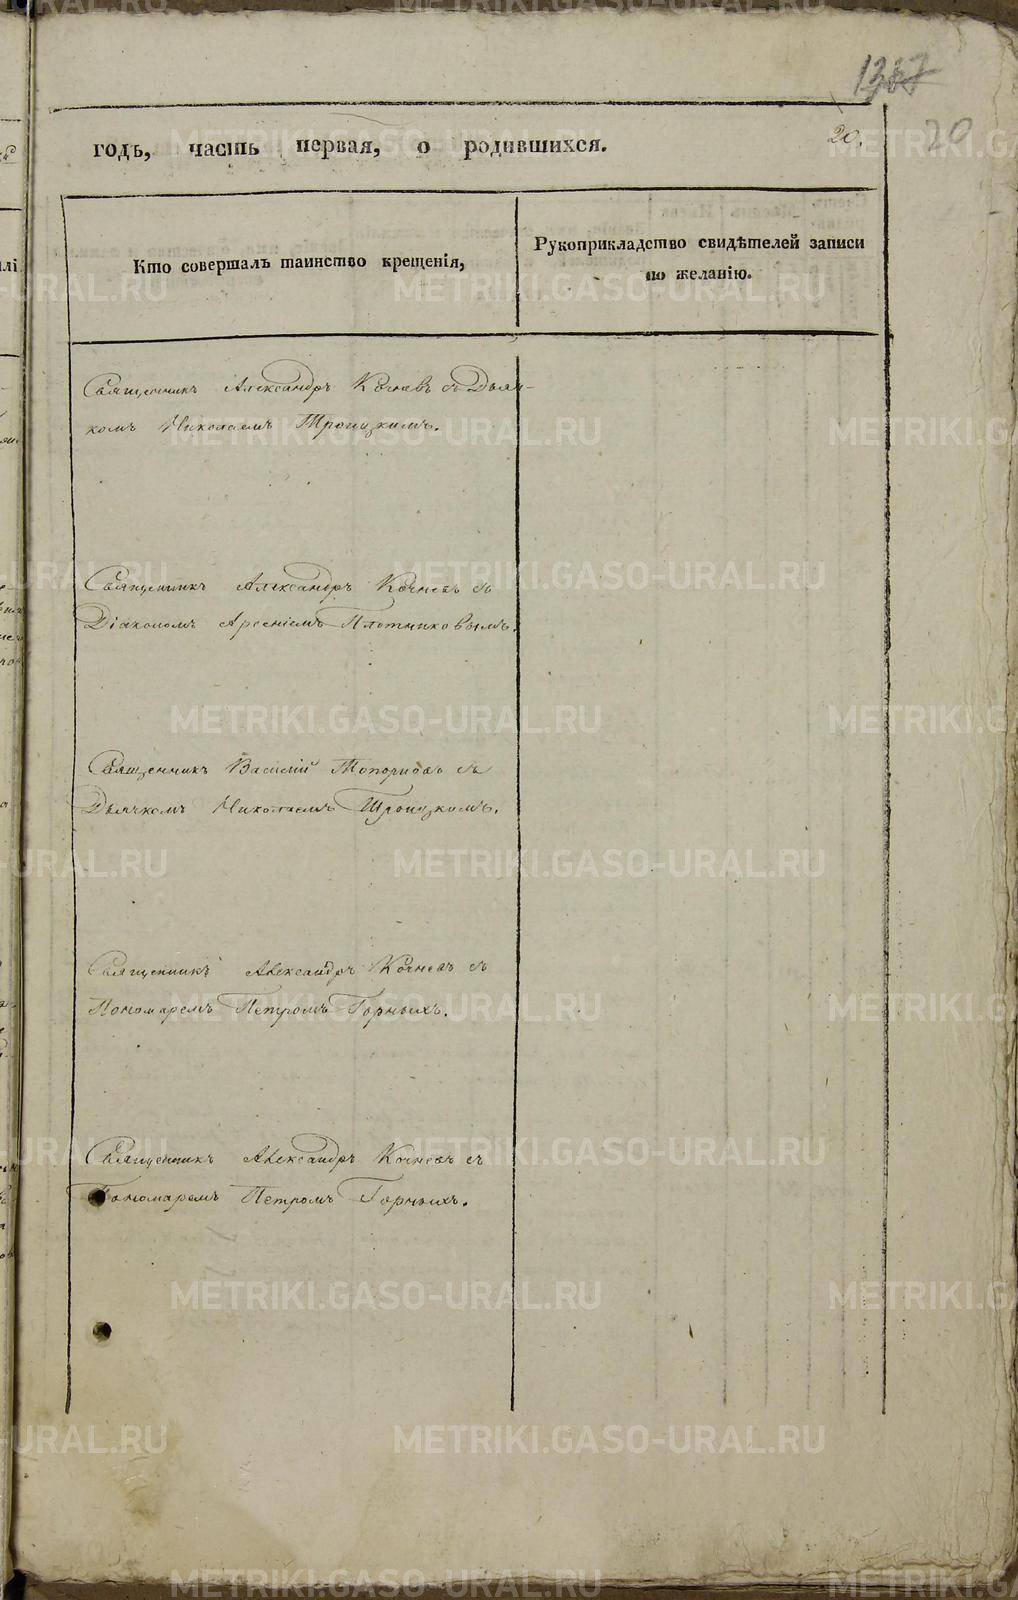 20
20.
годъ, часть первая, о родившихся.
Кто совершалъ таинство крещенія,
Рукоприкладство свидѣтелей записи
по желанію.
Священникъ Александръ Кочневъ съ Дьяч-
комъ Николаемъ Троицкимъ.
Священникъ Александръ Кочневъ съ
Діакономъ Арсеніемъ Плотниковымъ.
Священникъ Василій Топорковъ съ
Дьячкомъ Николаемъ Троицкимъ.
Священникъ Александръ Кочневъ съ
Пономаремъ Петромъ Горныхъ.
Священникъ Александръ Кочневъ съ
Пономаремъ Петромъ Горныхъ.
METRIKI.GASO-URAL.RU